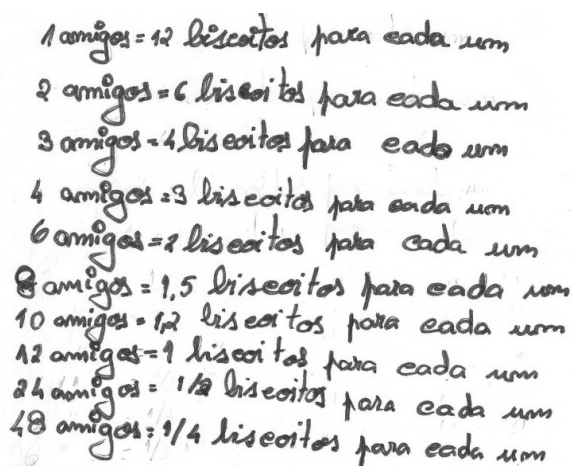 1 amigos = 12 biscoitos para cada um
2 amigos = 6 biscoitos para cada um
3 amigos = 4 biscoitos para cada um
4 amigos = 3 biscoitos para cada um
6 amigos = 2 biscoitos para cada um
8 amigos = 1,5 biscoitos para cada um
10 amigos = 1,2 biscoitos para cada um
12 amigos = 1 biscoitos para cada um
24 amigos = 1/2 biscoitos para cada um
48 amigos = 1/4 biscoitos para cada um